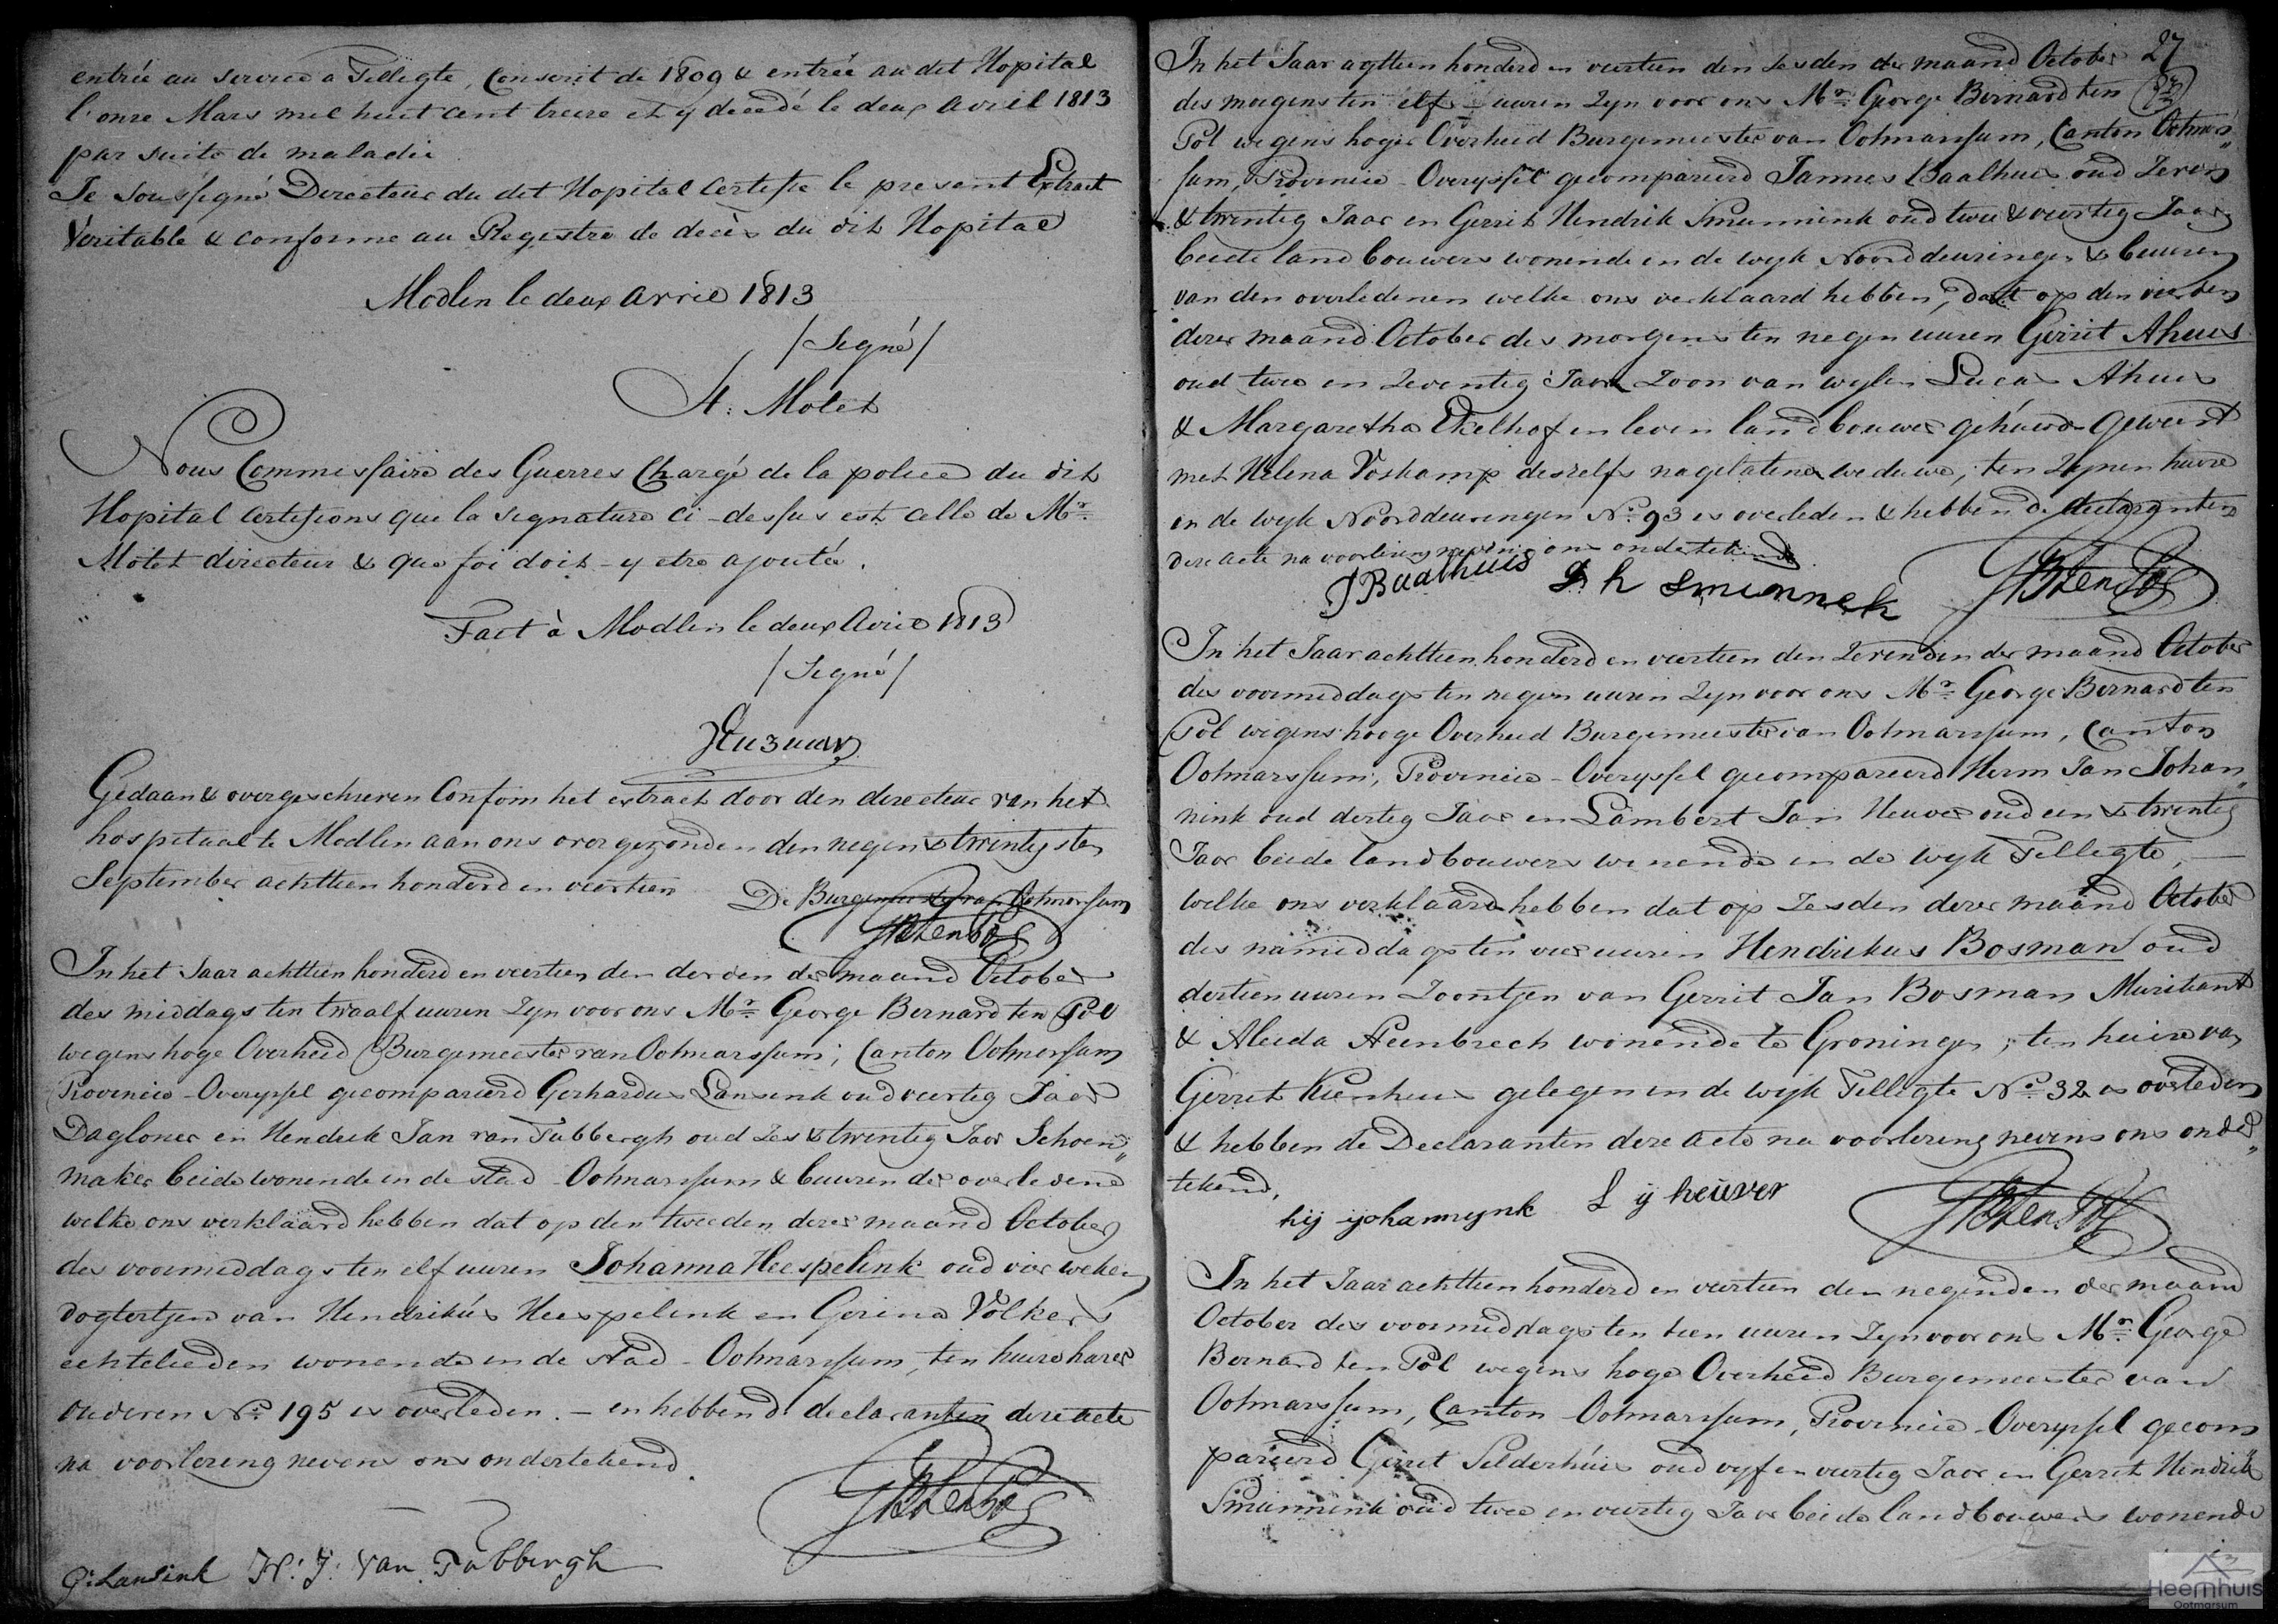 entrée au service a Tillegte, Conscrit de 1809 & entrée au dit Hopital
l'onze Mars mil huit cent treize et y decedé le deux Avril 1813
par suite de maladie
Je soussigné Directeur du dit Hopital Certifie le present Extrait
Véritable & conforme au Registre de decès du dit Hopital
Modlin le deux Avril 1813
/Signé/
A: Molet
Nous Commissaire des Guerres Chargé de la police du dit
Hopital Certifions que la signature ci-dessus est celle de Mr.
Molet directeur & que foi doit-y etre ajoutée.
Fait à Modlin le deux Avril 1813
/Signé/
Gedaan & overgeschreven Conform het extract door den directeur van het
hospitaal te Modlen aan ons overgezonden den negen & twintigsten
September achttien honderd en veertien
De Burgemeester van Ootmarsum
GBtenPol
In het Jaar achttien honderd en veertien den derden der maand October
des middags ten twaalf uuren Zyn voor ons Mr. George Bernard ten Pol
wegens hoge Overheid Burgemeester van Ootmarssum, Canton Ootmarssum
Provincie Overyssel gecompareerd Gerhardus Lansink oud veertig Jaar
Dagloner en Hendrik Jan van Tubbergh oud Zes & twintig Jaar Schoen„
maker beide wonende in de stad Ootmarssum & buuren der overledene
welke ons verklaard hebben dat op den tweeden dezer maand October
des voormiddags ten elf uuren Johanna Heespelink oud vier weken
dogtertjen van Hendrikús Heespelink en Gerina Volkers
echtelieden wonende in de stad Ootmarssum, ten huize harer
ouderen No. 195 is overleden. – en hebben de declaranten deze acte
na voorlezing nevens ons ondertekend.
GBtenPol
G: Lansink H: J: van Tubbergh
27
In het Jaar agttien honderd en veertien den Zesden der maand October
des morgens ten elf uuren Zyn voor ons Mr. George Bernard ten
Pol wegens hoger Overheid Burgemeester van Ootmarssum, Canton Ootmar„
sum, Provincie Overyssel gecompareerd Jannes Baalhuis oud Zeven
& twintig Jaar en Gerrit Hendrik Smunnink oud twee & veertig Jaar
beide landbouwers wonende in de wyk Noorddeuringen & buuren
van den overledenen welke ons verklaard hebben, dat op den vierden
dezer maand October des morgens ten negen uuren Gerrit Ahuis
oud twee en Zeventig Jaar Zoon van wylen Lucas Ahuis
& Margaretha Ekelhof in leven landbouwer gehuwd geweest
met Helena Voskamp deszelfs nagelatene weduwe, ten Zynen huize
in de wyk Noorddeuringen No. 93 is overleden & hebben de declaranten
deze acte na voorlezing nevens ons ondertekend
J Baalhuis G h smunnek GBtenPol
In het Jaar achttien honderd en veertien den Zevenden der maand October
des voormiddags ten negen uuren Zyn voor ons Mr. George Bernard ten
Pol wegens hooge Overheid Burgemeester van Ootmarssum, Canton
Ootmarssum, Provincie Overyssel gecompareerd Herm Jan Johan„
nink oud dertig Jaar en Lambert Jan Heuver oud een & twintig
Jaar beide landbouwers wonende in de wyk Tillegte,
welke ons verklaard hebben dat op Zesden dezer maand October
des namiddags ten vier uuren Hendrikus Bosman oud
dertien uuren Zoontjen van Gerrit Jan Bosman Murikant
& Aleida wonende te Groningen, ten huize van
Gerrit Kienhuis gelegen in de wyk Tillegte No. 32 is overleden
& hebben de Declaranten deze acte na voorlezing nevens ons onder„
tekend,
hij ijohannynk L ij heuver GBtenPol
In het Jaar achttien honderd en veertien den negenden der maand
October des voormiddags ten tien uuren Zyn voor ons Mr. George
Bernard ten Pol wegens hoge Overheid Burgemeester van
Ootmarssum, Canton Ootmarssum, Provincie Overyssel gecom
pareerd Gerrit Selderhúis oud vyf en veertig Jaar en Gerrit Hendrik
Smunnink oud twee en veertig Jaar beide landbouwers wonende
Heemhuis
Ootmarsum